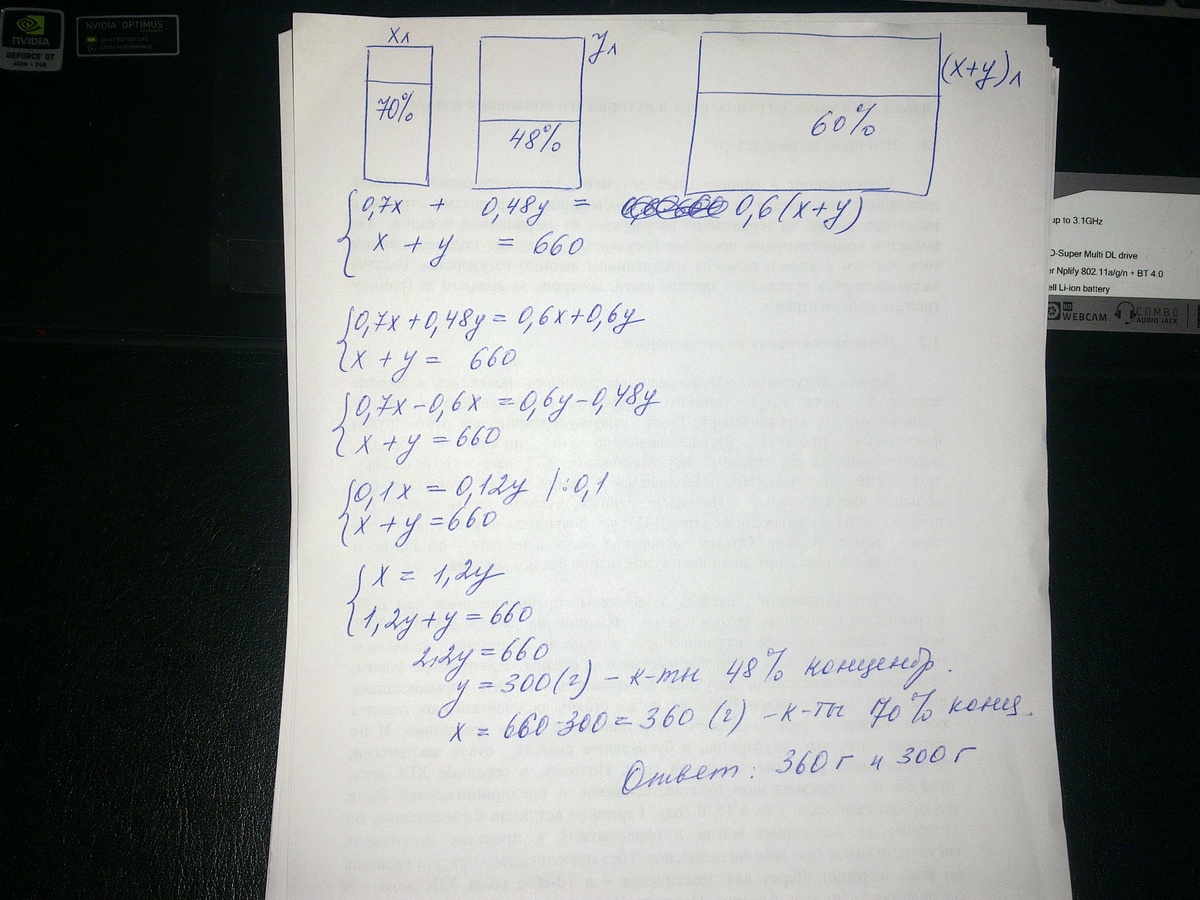 NVIDIA
GEFORCE GT
NVIDIA OPTIMUS
xл
70%
yл
48%
(x+y)л
60%
0,7x + 0,48y = 0,6(x+y)
x + y = 660
0,7x+0,48y=0,6x+0,6y
x + y = 660
0,7x-0,6x =0,6y-0,48y
x + y =660
0,1x = 0,12y |:0,1
x + y =660
x = 1,2y
1,2y+y=660
2,2y=660
y =300(г) - к-ты 48% концентр.
x = 660-300=360 (г) -к-ты 70% конц.
Ответ: 360г и 300г
up to 3.1GHz
D-Super Multi DL drive
er Nplify 802.11a/g/n + BT 4.0
ell Li-ion battery
HD
WEBCAM
COMBO
AUDIO JACK